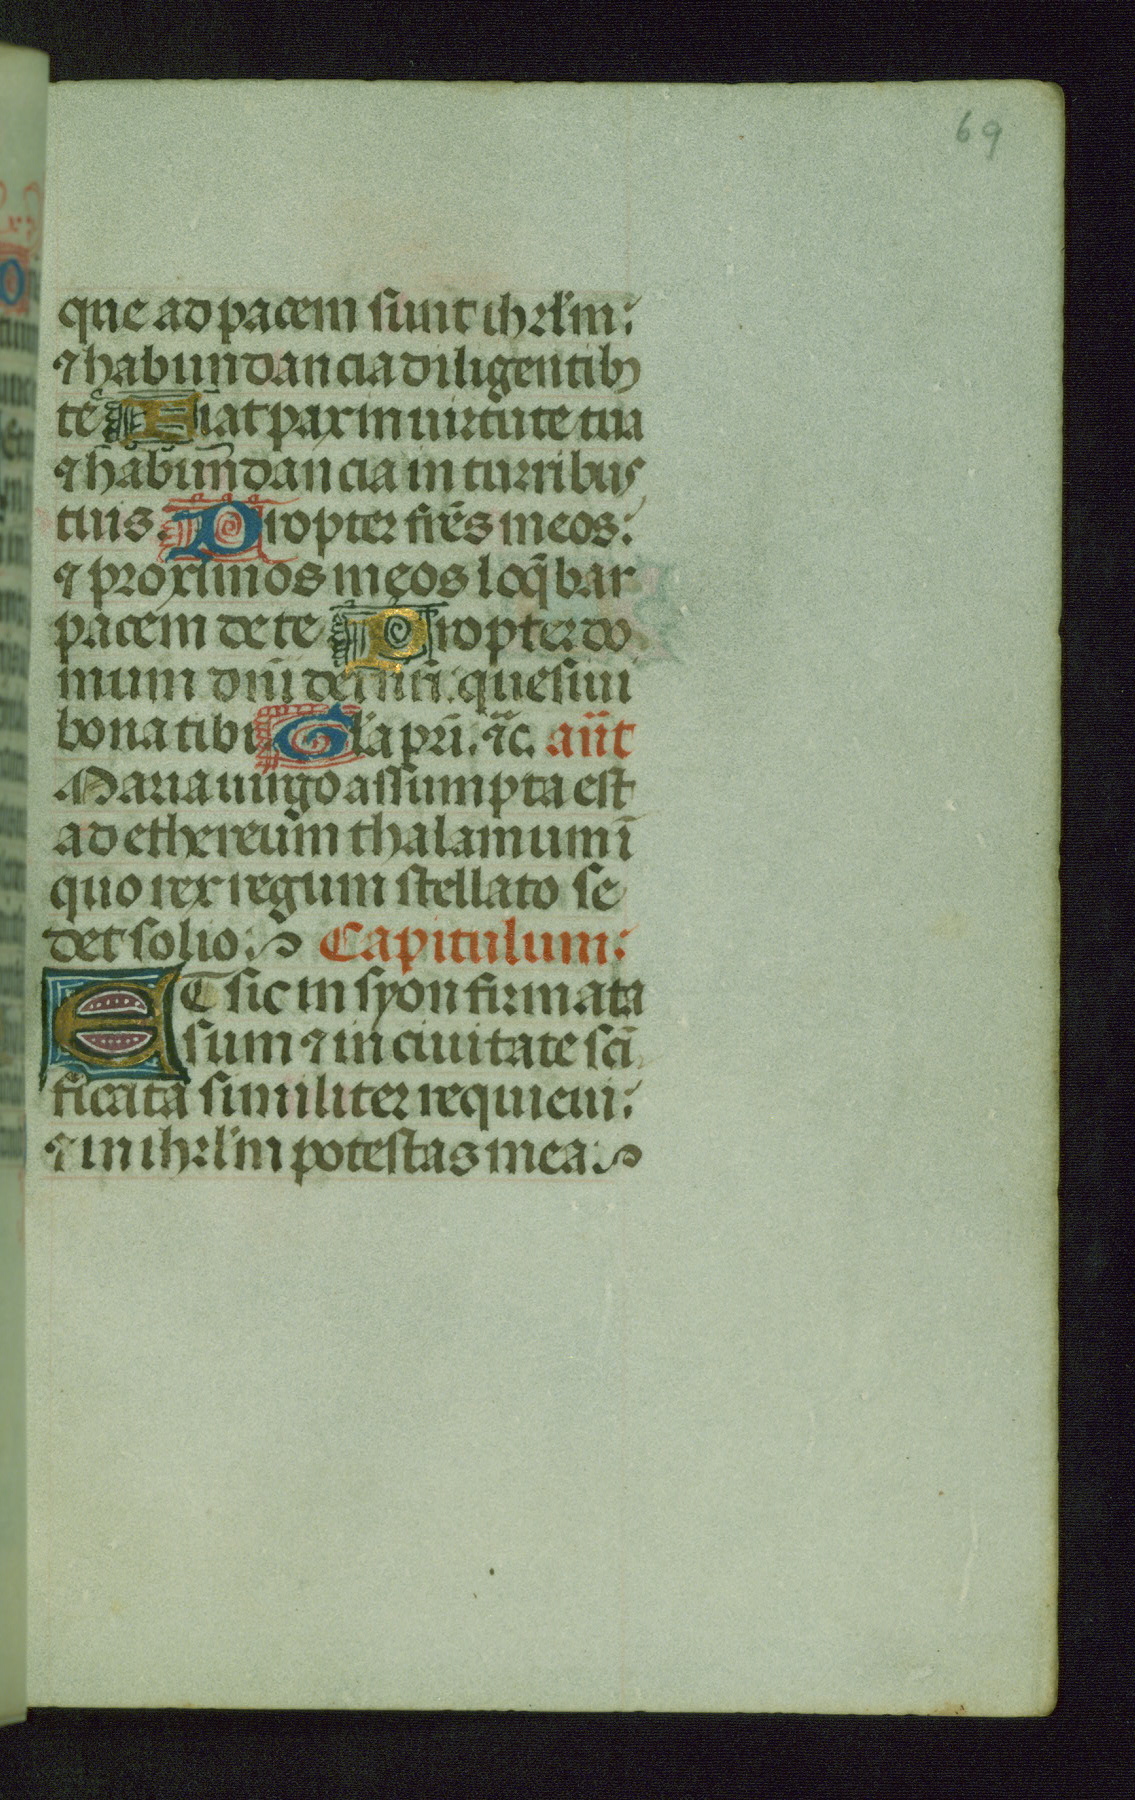 69
que ad pacem sunt ihrl'm:
⁊ habundancia diligentibꝫ
te. Fiat pax in uirtute tua
⁊ habundancia in turribus
tuis. Propter fr̄es meos:
⁊ proximos meos loq̄bar
pacem de te Propter do
mum dn̄i dei nr̄i. quesiui
bona tibi. Gl'a pr̄i. ⁊c̄. an̄t
Maria uirgo assumpta est
ad ethereum thalamum ī
quo rex regum stellato se
det solio: Capitulum:
ET sic in syon firmata
sum ⁊ in ciuitate scī
ficata similiter requieui:
⁊ in ihrl'm potestas mea: